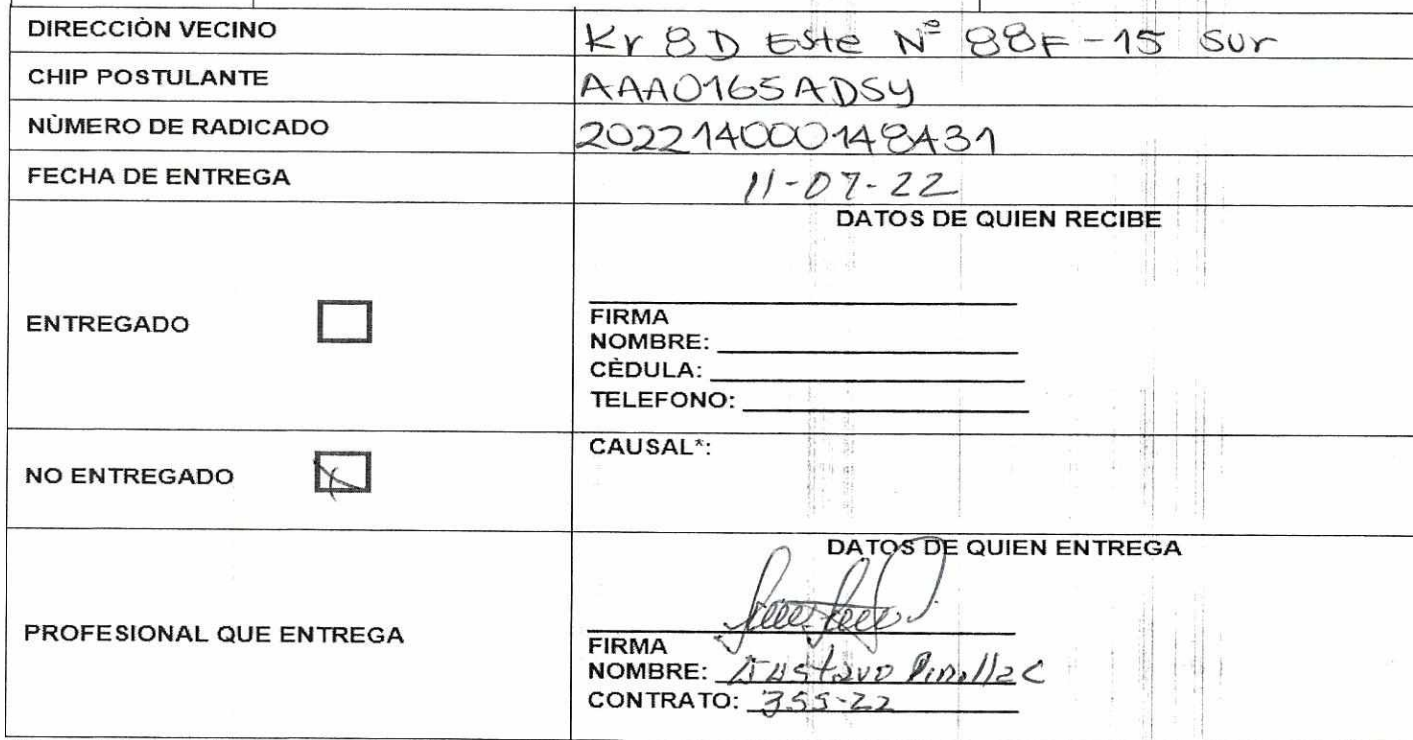 DIRECCIÒN VECINO Kr 8D Este Nº 88F-15 Sur
CHIP POSTULANTE AAA0165ADSY
NÙMERO DE RADICADO 202214000148431
FECHA DE ENTREGA 11-07-22
DATOS DE QUIEN RECIBE
ENTREGADO
FIRMA
NOMBRE:
CÈDULA:
TELEFONO:
NO ENTREGADO X
CAUSAL*:
DATOS DE QUIEN ENTREGA
PROFESIONAL QUE ENTREGA
FIRMA
NOMBRE: Gustavo Pinilla C
CONTRATO: 355-22